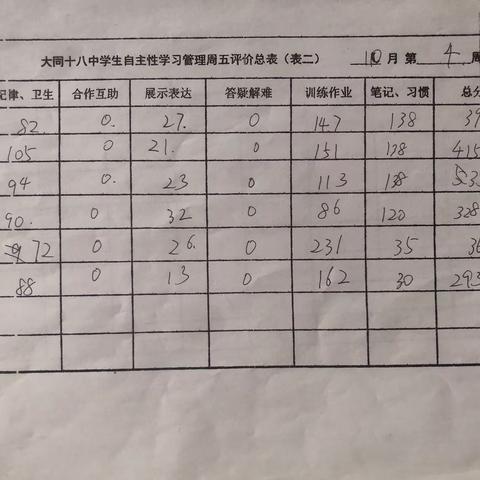 大同十八中学生自主性学习管理周五评价总表（表二） 10月 第 4 周
纪律、卫生 合作互助 展示表达 答疑解难 训练作业 笔记、习惯 总分
82. 0. 27. 0 147 138
105 0 21. 0 151 138 415
94 0. 23 0 113 138
90. 0 32 0 86 120 328
72 0 26. 0 231 35
88 0 13 0 162 30 293